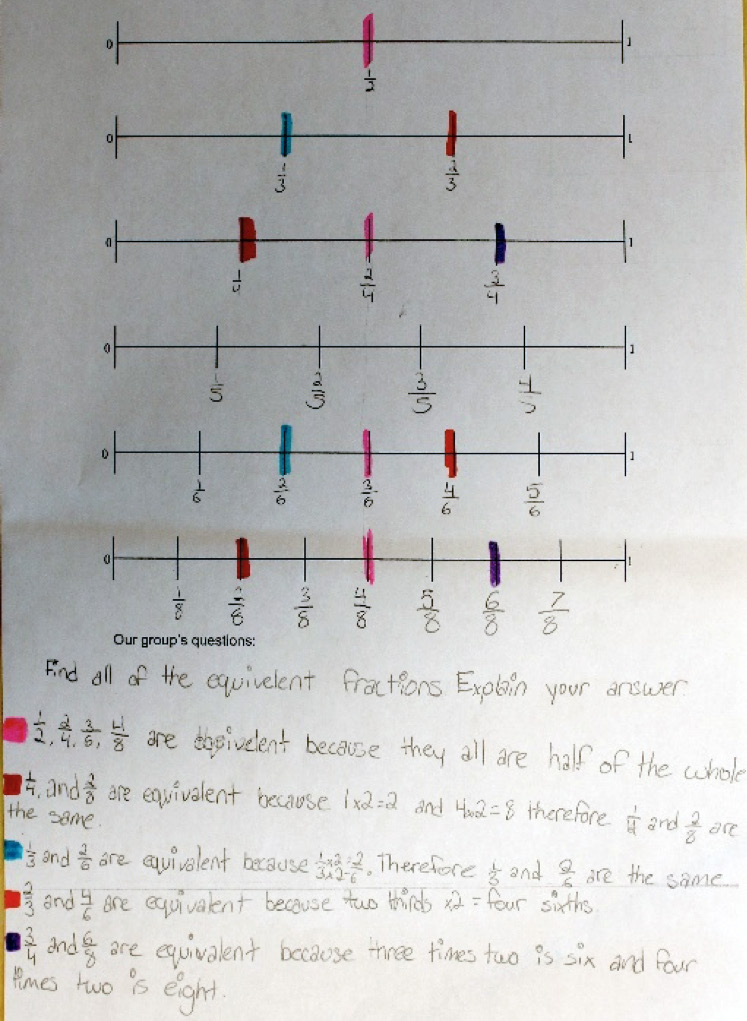 0 1
1/2
0 1
1/3 2/3
0 1
1/4 2/4 3/4
0 1
1/5 2/5 3/5 4/5
0 1
1/6 2/6 3/6 4/6 5/6
0 1
1/8 2/8 3/8 4/8 5/8 6/8 7/8
Our group's questions:
Find all of the equivelent fractions Explain your answer.
1/2, 2/4, 3/6, 4/8 are eqivelent because they all are half of the whole
1/4, and 2/8 are equivalent because 1x2=2 and 4x2=8 therefore 1/4 and 2/8 are
the same.
1/3 and 2/6 are equivalent because 1x2=2/3x2=6. Therefore 1/3 and 2/6 are the same.
2/3 and 4/6 are equivalent because two thirds x2 = four sixths.
3/4 and 6/8 are equivalent because three times two is six and four
times two is eight.